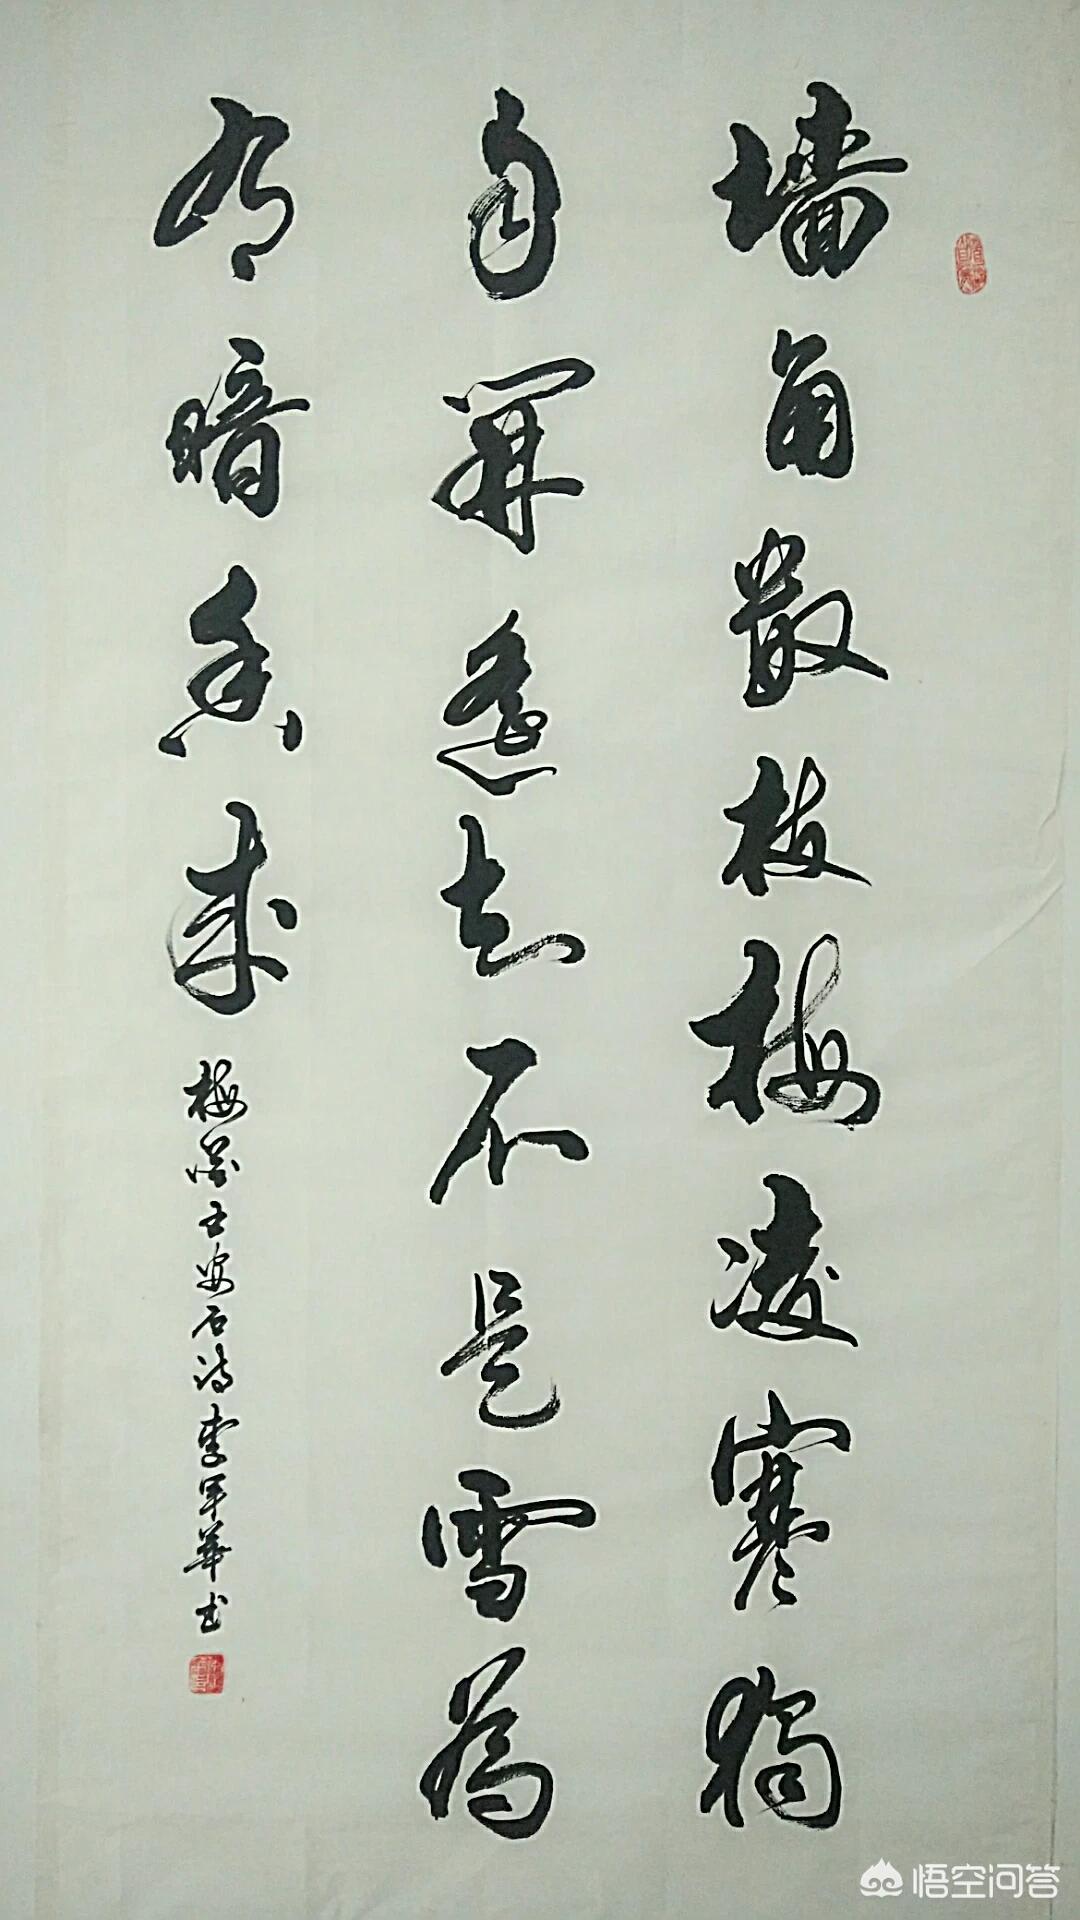 墙角數枝梅凌寒獨
自開遥知不是雪為
有暗香来
梅花王安石诗李军華书
悟空问答